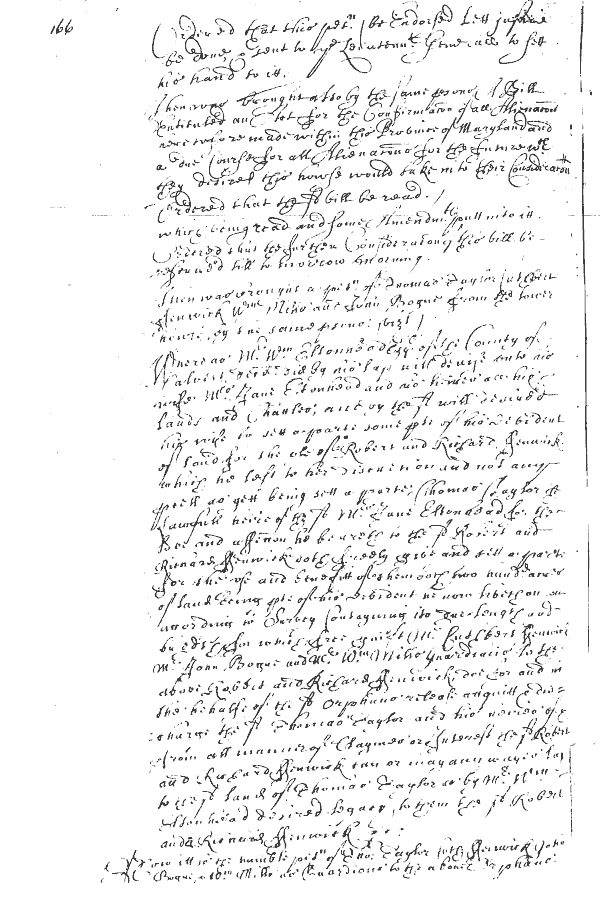 166
Ordered that this petn be Endorsed Lett
be done & sent to ye Lieutennt Generall to sett
his hand to it.
Then was brought also by the same persons A Bill
Intituled an Act for the Confirmacon of all Alienacons
heretofore made within this Province of Maryland and
a Course for all Alienacons for the future wch
they desired this howse would take into their Consideracon
Ordered that the sd bill be read. /
which being read and some Amendmts putt into it.
Ordered that the further Consideracon of this bill be
referred till to morrow Morning.
Then was brought a petn of Thomas Taylor Cutbert
Fenwick Wm Mills and John Bogue from the lower
howse by the same persons vizt /
Whereas Mr Wm Eltonhead Esqr of the County of
Calvert decd did by his last will devise unto his
wife Mrs Jane Eltonhead and his heires all his
lands and Chattles, and by the sd will desired
his wife to sett aparte some pte of his devident
of land for the use of Robert and Richard Fenwick
which he left to her discretion and not any
pte as yett being sett aparte, Thomas Taylor the
Lawfull heire of the sd Mrs Jane Eltonhead for the
love and affection he beareth to the sd Robert and
Richard Fenwick doth freely give and sett aparte
for the use and benefitt of them both two hundd acres
of land being pte of his devident he now liveth on
according to Survey Contayning its due length and
bredth for which free guift Mr Cutbert Fenwick
Mr John Bogue and Mr Wm Mills Guardians to the
above Robert and Richard Fenwick doe for and in
the behalfe of the sd Orphans release acquitt & dis=
charge the sd Thomas Taylor and his heires
from all manner of Claymes or Interest the sd Robert
and Richard Fenwick can or may any wayes lay
to the sd land of Thomas Taylor as by Mr Wm
Eltonhead desired legacy to them the sd Robert
and Richard Fenwick
Now itt is the humble petn of Tho: Taylor Cutb: Fenwick John
Bogue & Wm Mills as Guardians to the above Orphans